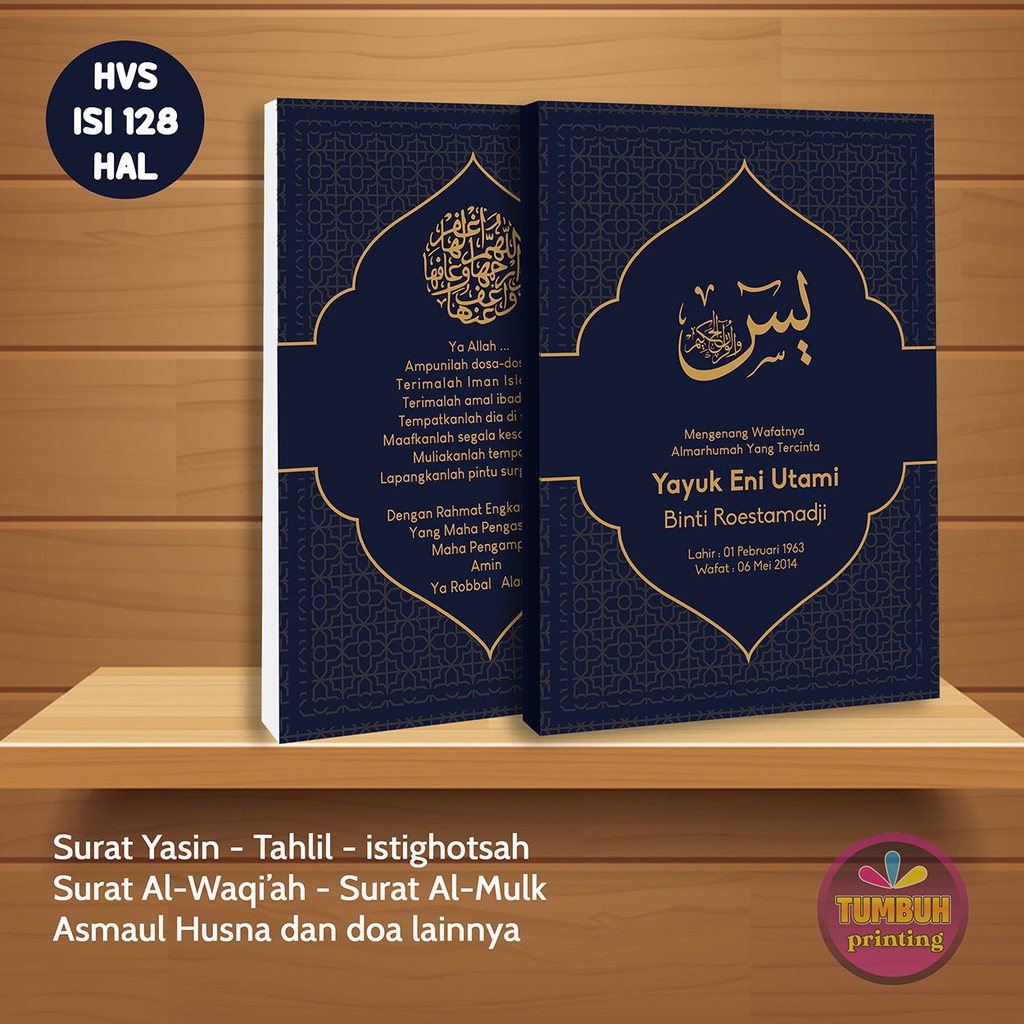 HVS
ISI 128
HAL
اللهم اغفر لها وارحمها وعافها واعف عنها
Ya Allah ...
Ampunilah dosa-dos
Terimalah Iman Isla
Terimalah amal ibad
Tempatkanlah dia di s
Maafkanlah segala kesa
Muliakanlah tempa
Lapangkanlah pintu surg
Dengan Rahmat Engka
Yang Maha Pengas
Maha Pengamp
Amin
Ya Robbal Ala
يس
والقرآن الحكيم
Mengenang Wafatnya
Almarhumah Yang Tercinta
Yayuk Eni Utami
Binti Roestamadji
Lahir : 01 Pebruari 1963
Wafat : 06 Mei 2014
Surat Yasin - Tahlil - istighotsah
Surat Al-Waqi'ah - Surat Al-Mulk
Asmaul Husna dan doa lainnya
TUMBUH
printing